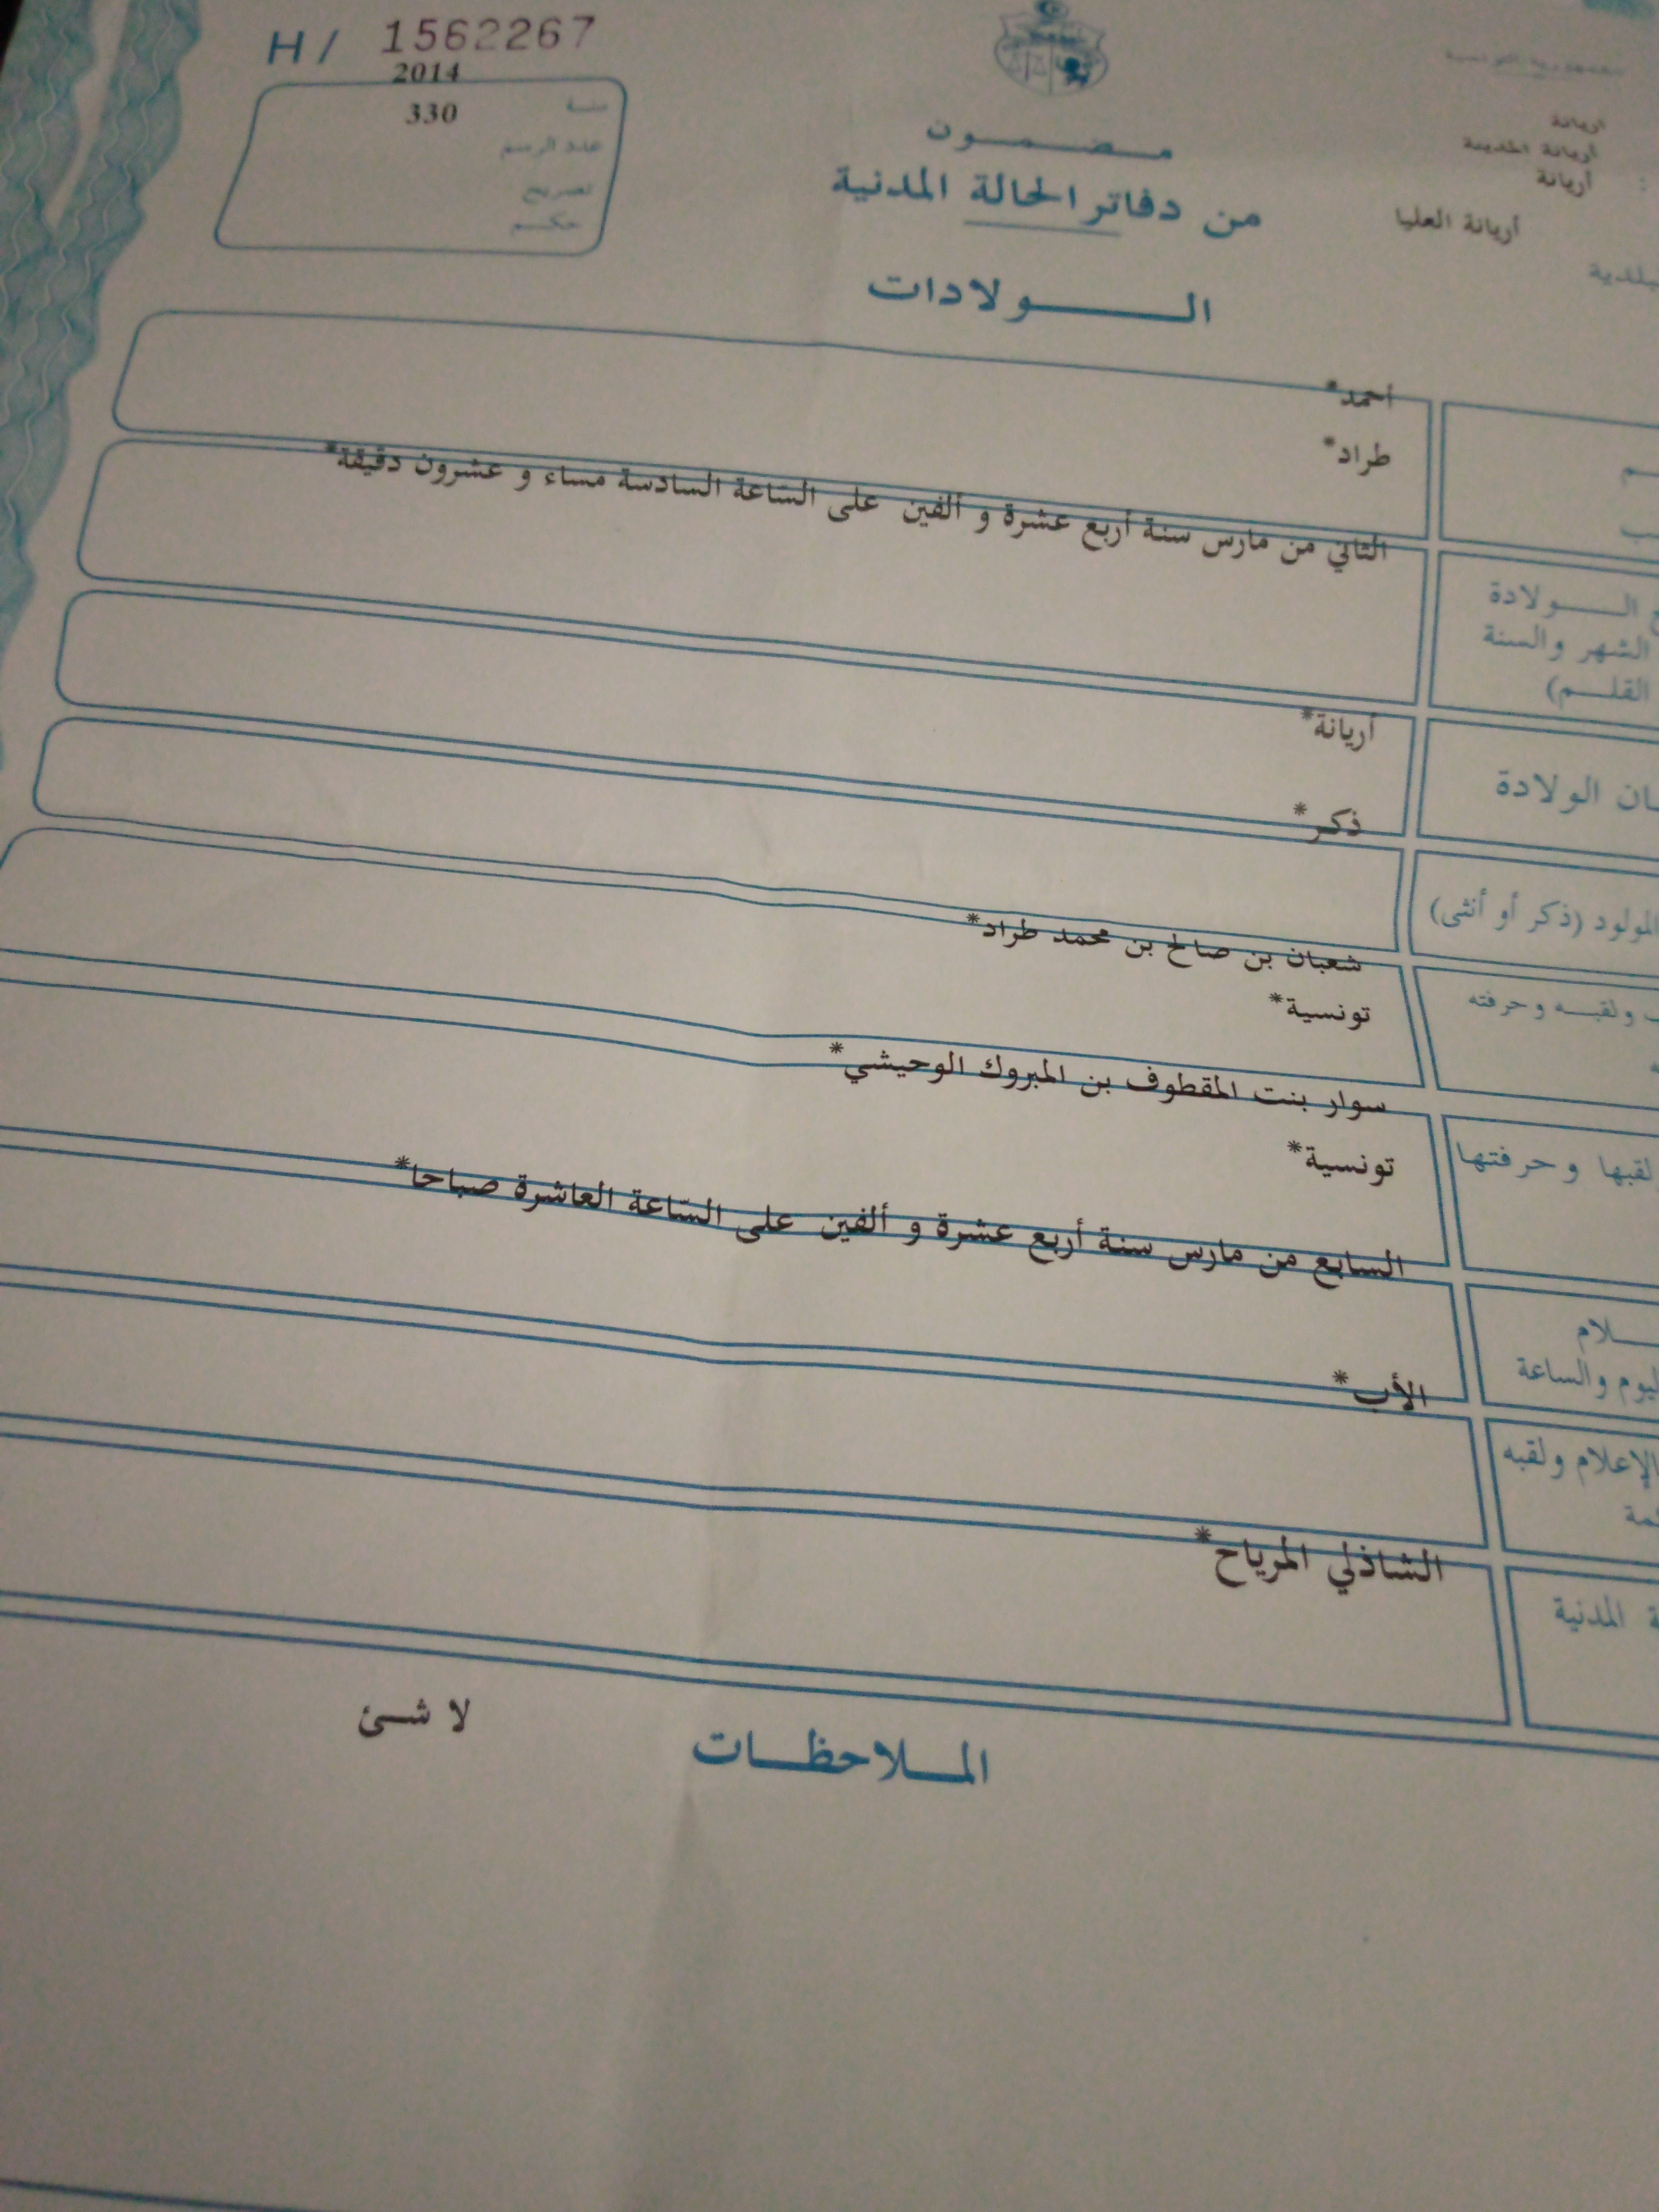 H / 1562267
2014
330
سنة
عدد الرسم
تصريح
حكم
الجمهورية التونسية
أريانة
أريانة المدينة
أريانة
أريانة العليا
مضمون
من دفاتر الحالة المدنية
الولادات
أحمد*
طراد*
الثاني من مارس سنة أربع عشرة و ألفين على الساعة السادسة مساء و عشرون دقيقة*
الولادة
الشهر والسنة
القلم)
أريانة*
الولادة
ذكر*
المولود (ذكر أو أنثى)
شعبان بن صالح بن محمد طراد*
ولقبه وحرفته
تونسية*
سوار بنت المقطوف بن المبروك الوحيشي*
لقبها وحرفتها
تونسية*
السابع من مارس سنة أربع عشرة و ألفين على الساعة العاشرة صباحا*
اليوم والساعة
الأب*
الإعلام ولقبه
الشاذلي المرياح*
المدنية
الملاحظات
لا شئ